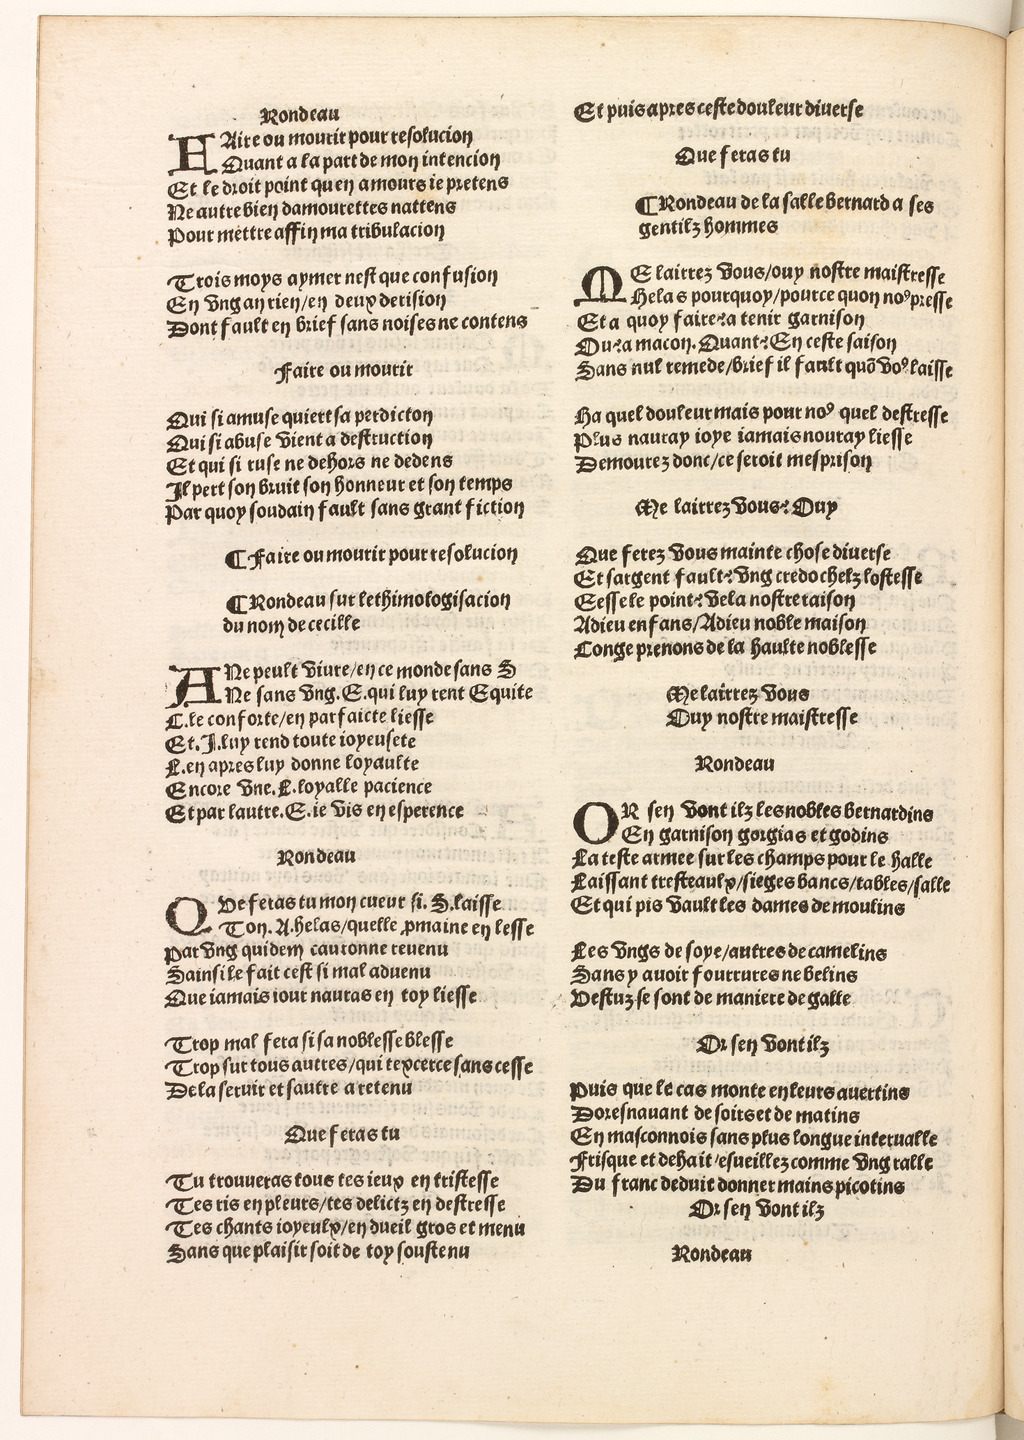 Rondeau
FAire ou mourir pour resolucion
Quant a la part de mon intencion
Et le droit point quen amours ie pretens
Ne autre bien damourettes nattens
Pour mettre affin ma tribulacion
Trois moys aymer nest que confusion
En vng an rien/en deux derision
Dont fault en brief sans noises ne contens
Faire ou mourir
Qui si amuse quiert sa perdicton
Qui si abuse vient a destruction
Et qui si ruse ne dehors ne dedens
Il pert son bruit son honneur et son temps
Par quoy soudain fault sans grant fiction
¶ Faire ou mourir pour resolucion
¶ Rondeau sur lethimologisacion
du nom de cecille
ANe peult viure/en ce monde sans S
Ne sans vng .E. qui luy rent Equite
C. le conforte/en parfaicte liesse
Et .I. luy rend toute ioyeusete
L. en apres luy donne loyaulte
Encore vne .L. loyalle pacience
Et par lautre .E. ie vis en esperence
Rondeau
QVe feras tu mon cueur si .S. laisse
Ton .A. helas/quelle ꝓmaine en lesse
Par vng quidem cautonne reuenu
Sainsi le fait cest si mal aduenu
Que iamais iour nauras en toy liesse
Trop mal fera si sa noblesse blesse
Trop sur tous autres/qui texcerce sans cesse
De la seruir et sautre a retenu
Que feras tu
Tu trouueras tous tes ieux en tristesse
Tes ris en pleurs/tes delictz en destresse
Tes chants ioyeulx/en dueil gros et menu
Sans que plaisir soit de toy soustenu
Et puis apres ceste douleur diuerse
Que feras tu
¶ Rondeau de la salle bernard a ses
gentilz hommes
ME lairrez vous/ouy nostre maistresse
Helas pourquoy/pource quon noꝰ presse
Et a quoy faire?a tenir garnison
Ou?a macon. Quant?En ceste saison
Sans nul remede/brief il fault quō voꝰ laisse
Ha quel douleur mais pour noꝰ quel destresse
Plus nauray ioye iamais nouray liesse
Demourez donc/ce seroit mesprison
Me lairrez vous? Ouy
Que ferez vous mainte chose diuerse
Et sargent fault?vng credo chelz lostesse
Eesse le point?vela nostre raison
Adieu enfans/Adieu noble maison
Conge prenons de la haulte noblesse
Me lairrez vous
Ouy nostre maistresse
Rondeau
OR sen vont ilz les nobles bernardins
En garnison gorgias et godins
La teste armee sur les champs pour le halle
Laissant tresteaulx/sieges bancs/tables/salle
Et qui pis vault les dames de moulins
Les vngs de soye/autres de camelins
Sans y auoir fourrures ne belins
Vestuz se sont de maniere de galle
Or sen vont ilz
Puis que le cas monte en leurs auertins
Doresnauant de soirs et de matins
En masconnois sans plus longue interualle
Frisque et dehait/esueillez comme vng ralle
Du franc deduit donner mains picotins
Or sen vont ilz
Rondeau